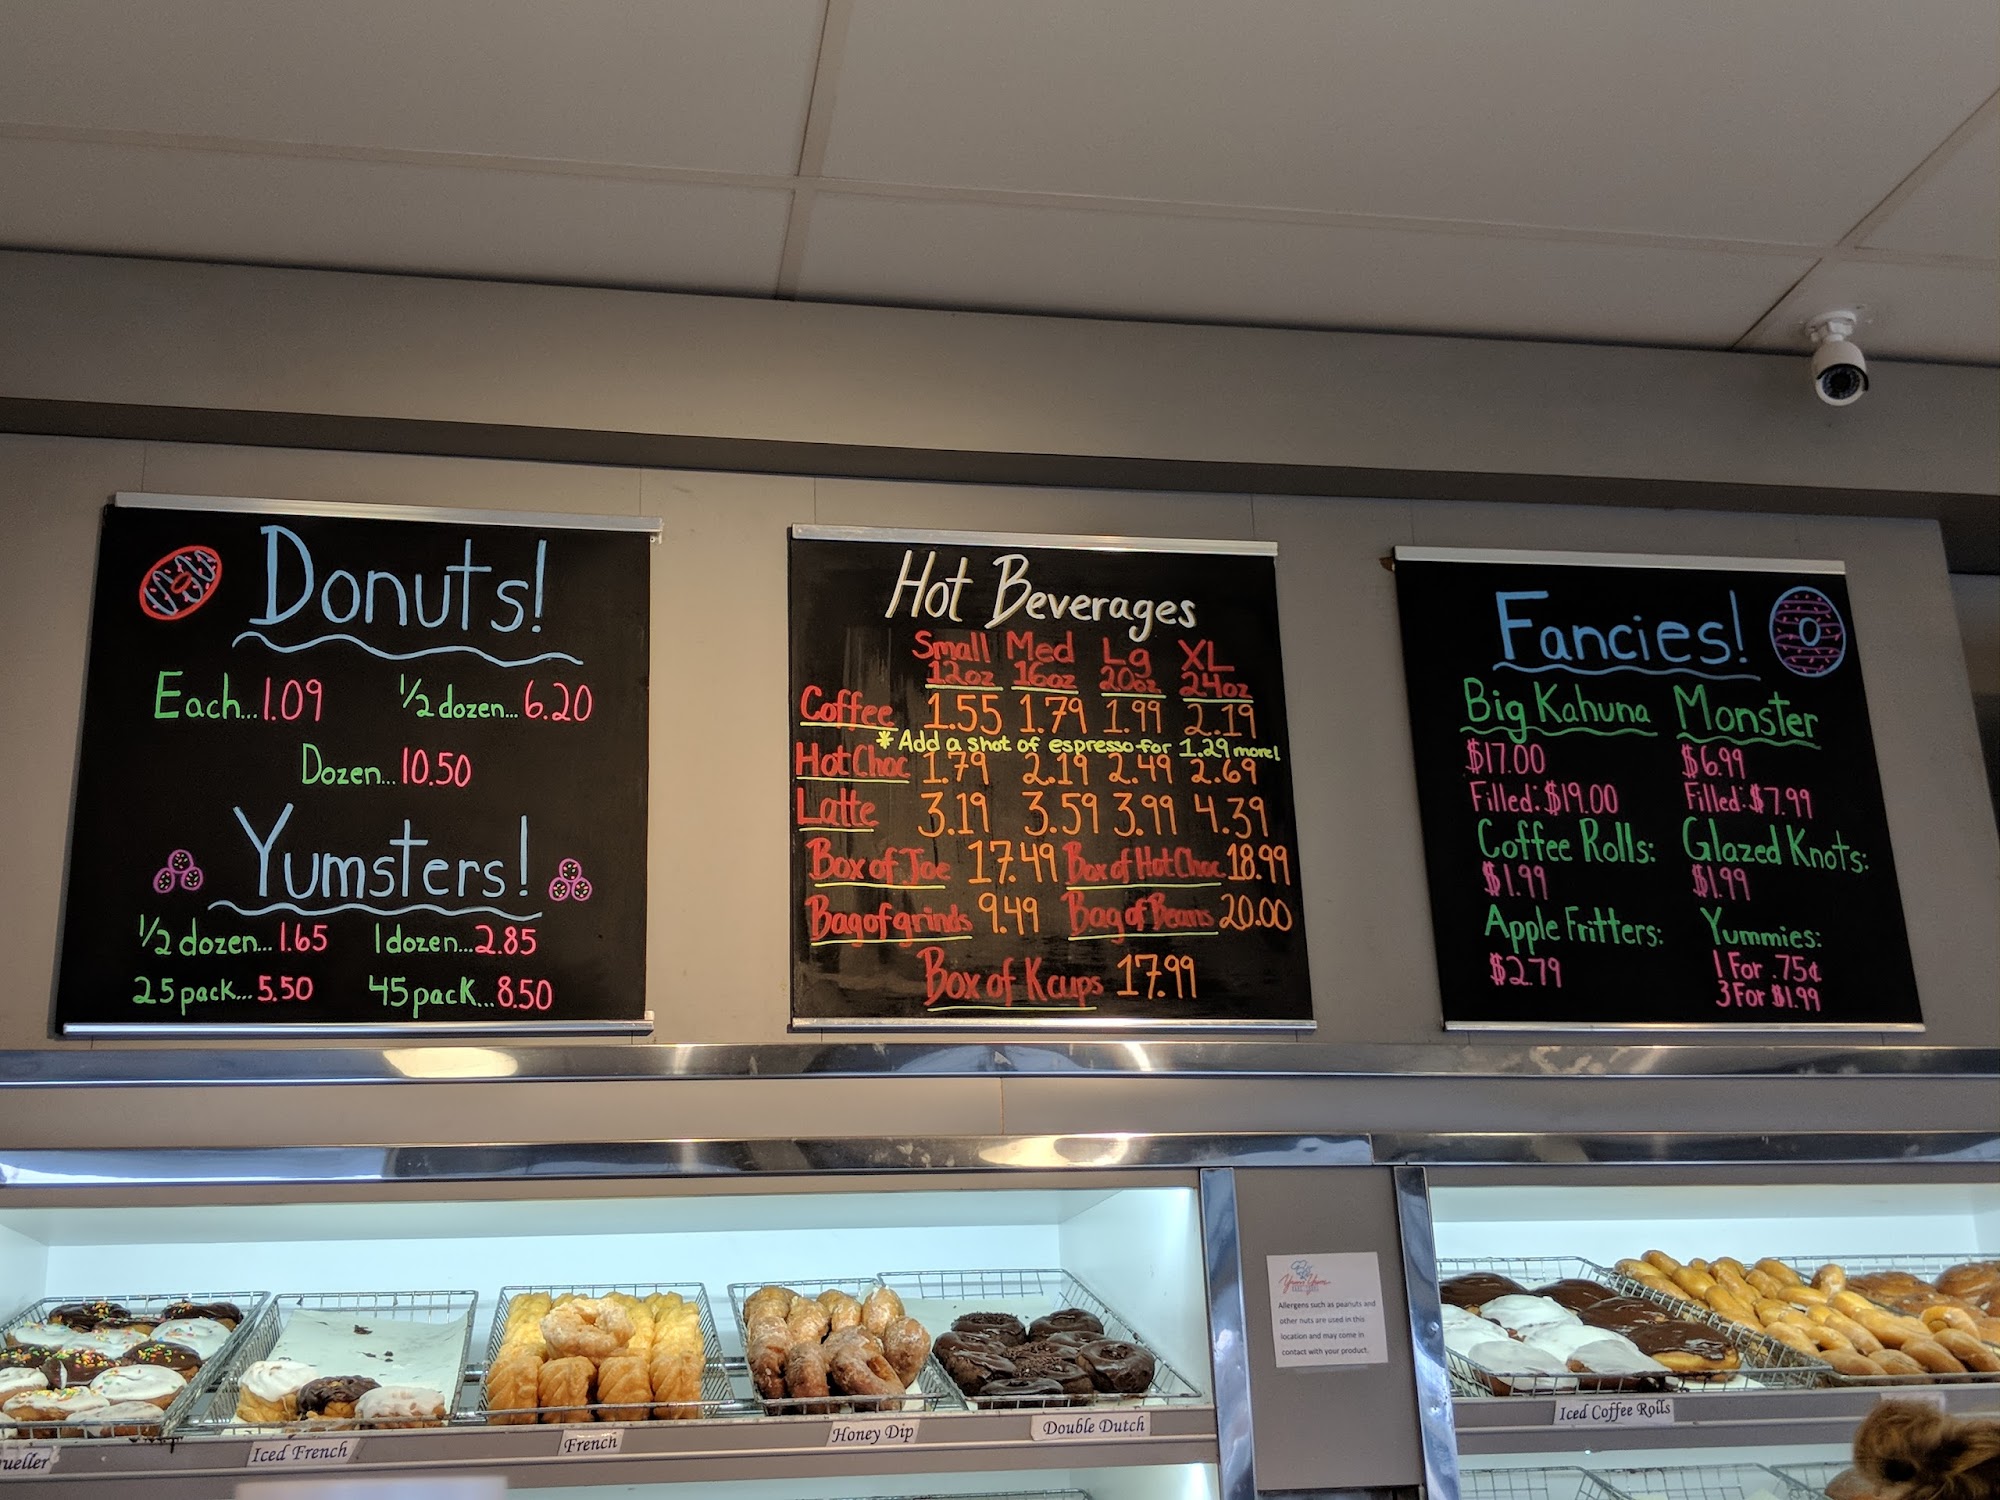 Donuts!
Each...1.09 1/2 dozen...6.20
Dozen...10.50
Yumsters!
1/2 dozen...1.65 1 dozen...2.85
25 pack...5.50 45 pack...8.50
Hot Beverages
Small Med Lg XL
12oz 16oz 20oz 24oz
Coffee 1.55 1.79 1.99 2.19
* Add a shot of espresso for 1.29 more!
Hot Choc 1.79 2.19 2.49 2.69
Latte 3.19 3.59 3.99 4.39
Box of Joe 17.49 Box of Hot Choc 18.99
Bag of grinds 9.49 Bag of Beans 20.00
Box of Kcups 17.99
Fancies!
Big Kahuna Monster
$17.00 $6.99
Filled: $19.00 Filled: $7.99
Coffee Rolls: Glazed Knots:
$1.99 $1.99
Apple Fritters: Yummies:
$2.79 1 For .75¢
3 For $1.99
Allergens such as peanuts and
other nuts are used in this
location and may come in
contact with your product.
Iced French
French
Honey Dip
Double Dutch
Iced Coffee Rolls